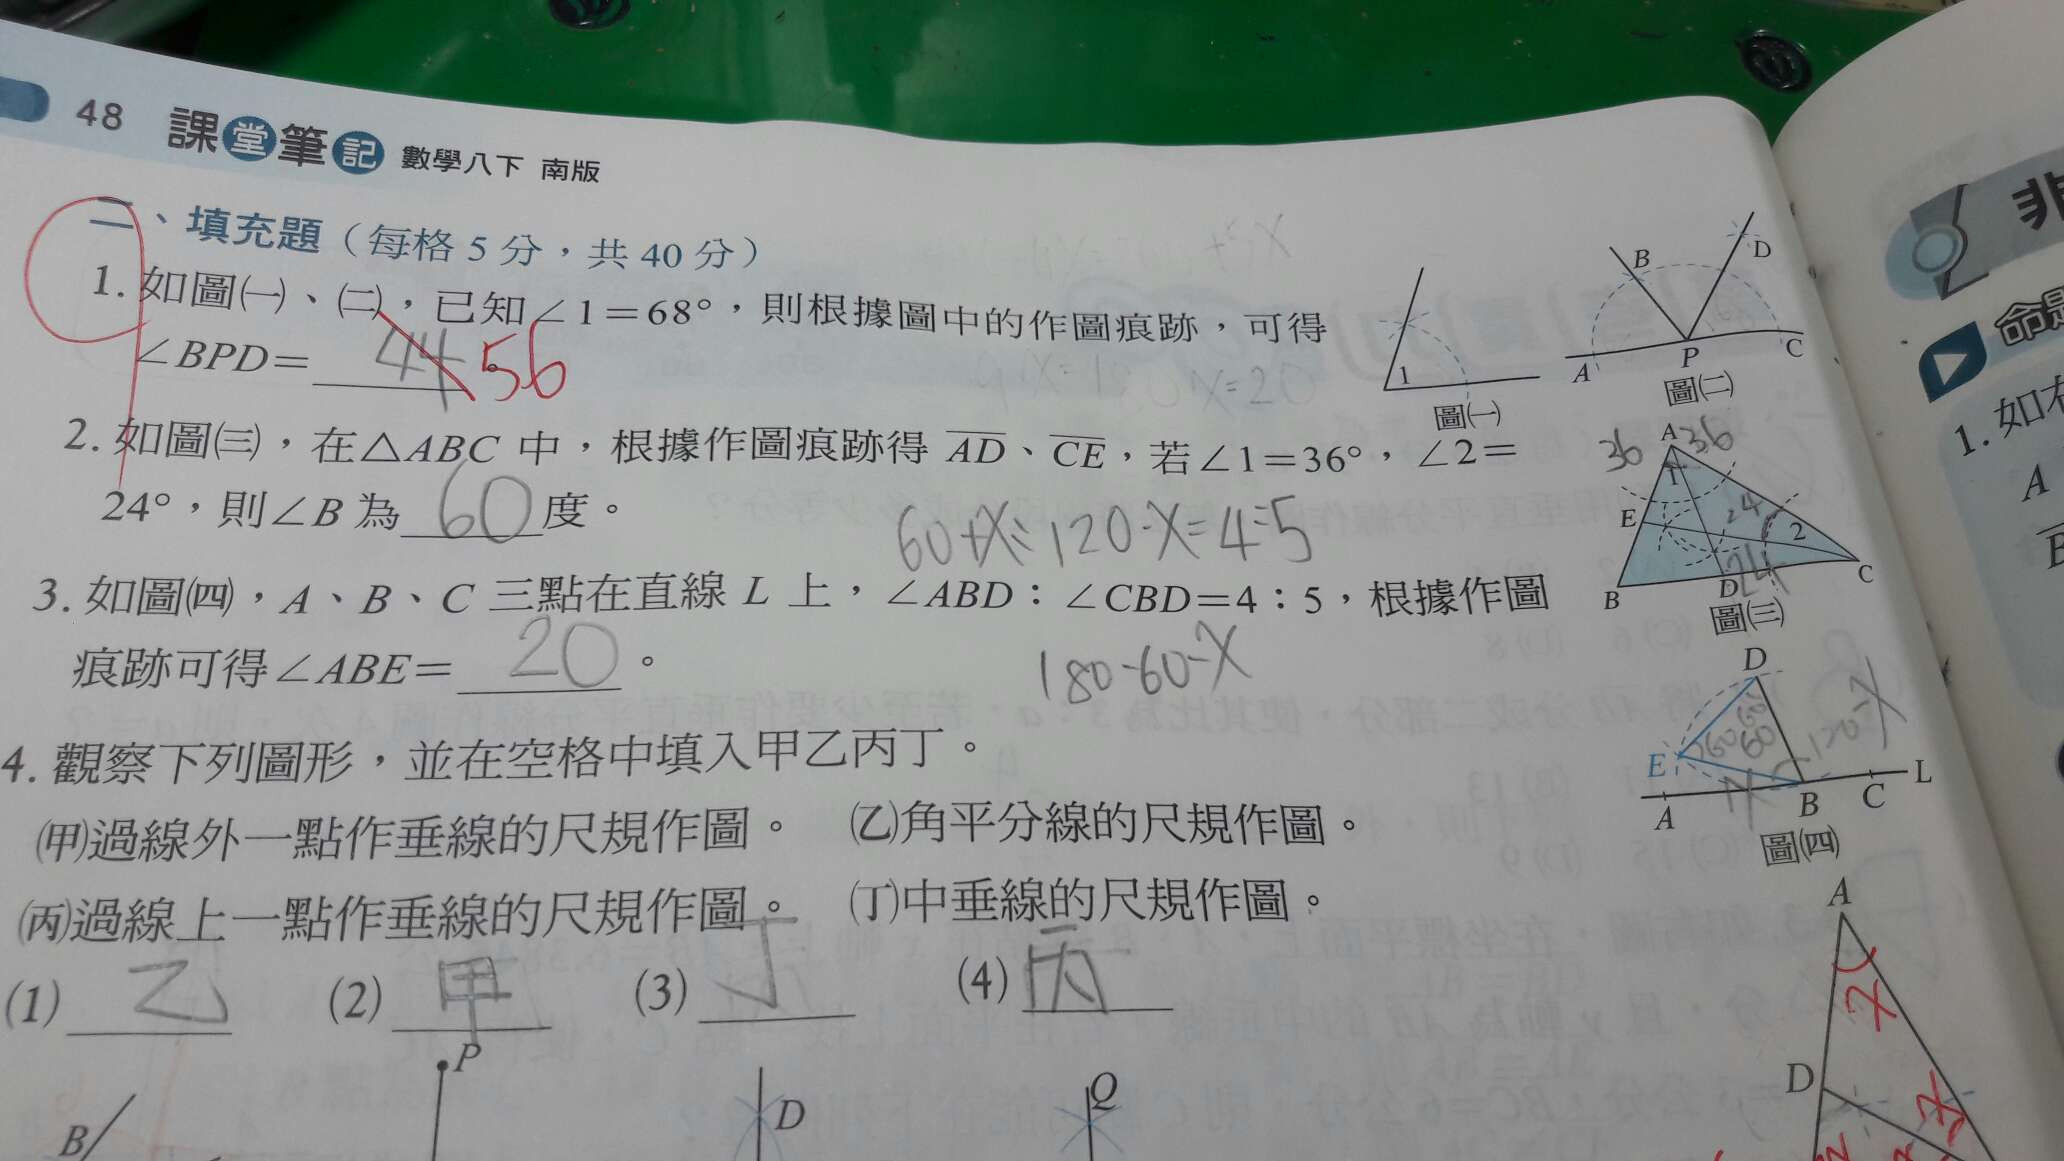 48 課堂筆記 數學八下 南版
二、填充題（每格5分，共40分）
1. 如圖㈠、㈡，已知∠1＝68°，則根據圖中的作圖痕跡，可得
∠BPD＝ 44 。 56
2. 如圖㈢，在△ABC 中，根據作圖痕跡得 AD、CE，若∠1＝36°，∠2＝
24°，則∠B 為 60 度。
60+X:120-X=4:5
3. 如圖㈣，A、B、C 三點在直線 L 上，∠ABD：∠CBD＝4：5，根據作圖
痕跡可得∠ABE＝ 20 。
180-60-X
4. 觀察下列圖形，並在空格中填入甲乙丙丁。
㈙過線外一點作垂線的尺規作圖。 ㈚角平分線的尺規作圖。
㈛過線上一點作垂線的尺規作圖。 ㈜中垂線的尺規作圖。
(1) 乙 (2) 甲 (3) 丁 (4) 丙
P
B
D
Q
1
圖㈠
B
D
A
P
C
圖㈡
36 A 36
1
E
24
2
24
B
D
C
圖㈢
D
60
60
60
120-X
E
X
A
B
C
L
圖㈣
A
X
D
X
非
命題
1. 如右
A
B